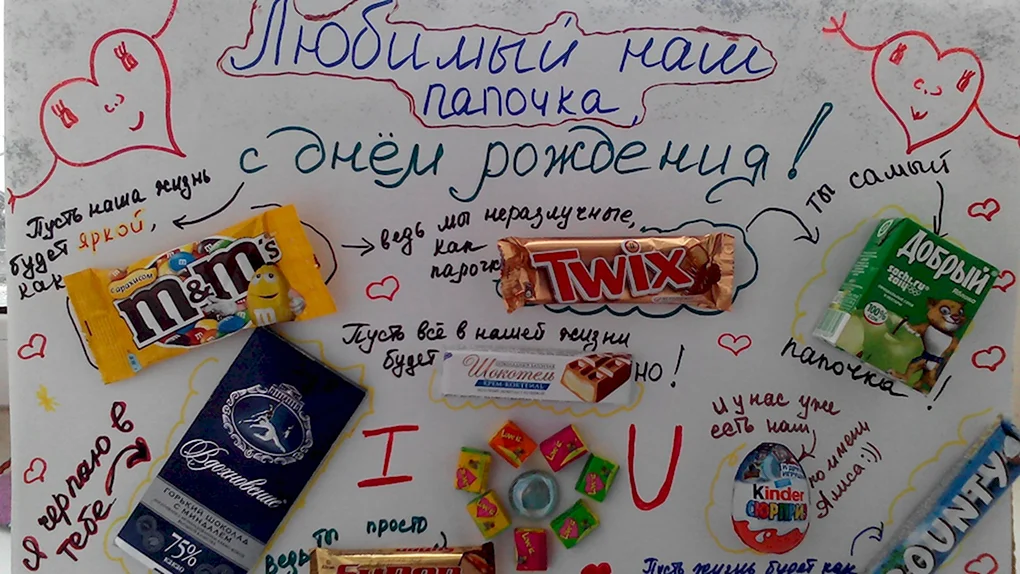 Любимый наш
папочка,
с днём рождения!
Пусть наша жизнь
будет яркой,
как
с арахисом
m&m's
ведь мы неразлучные,
как
парочка
TWIX
ты самый
ДОБРЫЙ
sochi.ru
2014
яблоко
100%
папочка!
Пусть всё в нашей жизни
будет
Шокотель
КРЕМ-КОКТЕЙЛЬ
но!
Я черпаю в
тебе
Вдохновение
ГОРЬКИЙ ШОКОЛАД
С МИНДАЛЕМ
75%
какао
I
Love is
U
и у нас уже
есть наш
Kinder
СЮРПРИЗ
по имени
Алиса:))
BOUNTY
Ведь ты просто
Пусть жизнь будет как